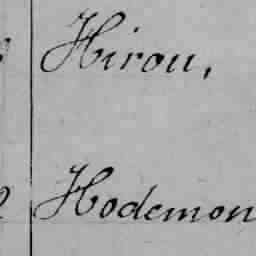 Hirou,
Hodemon